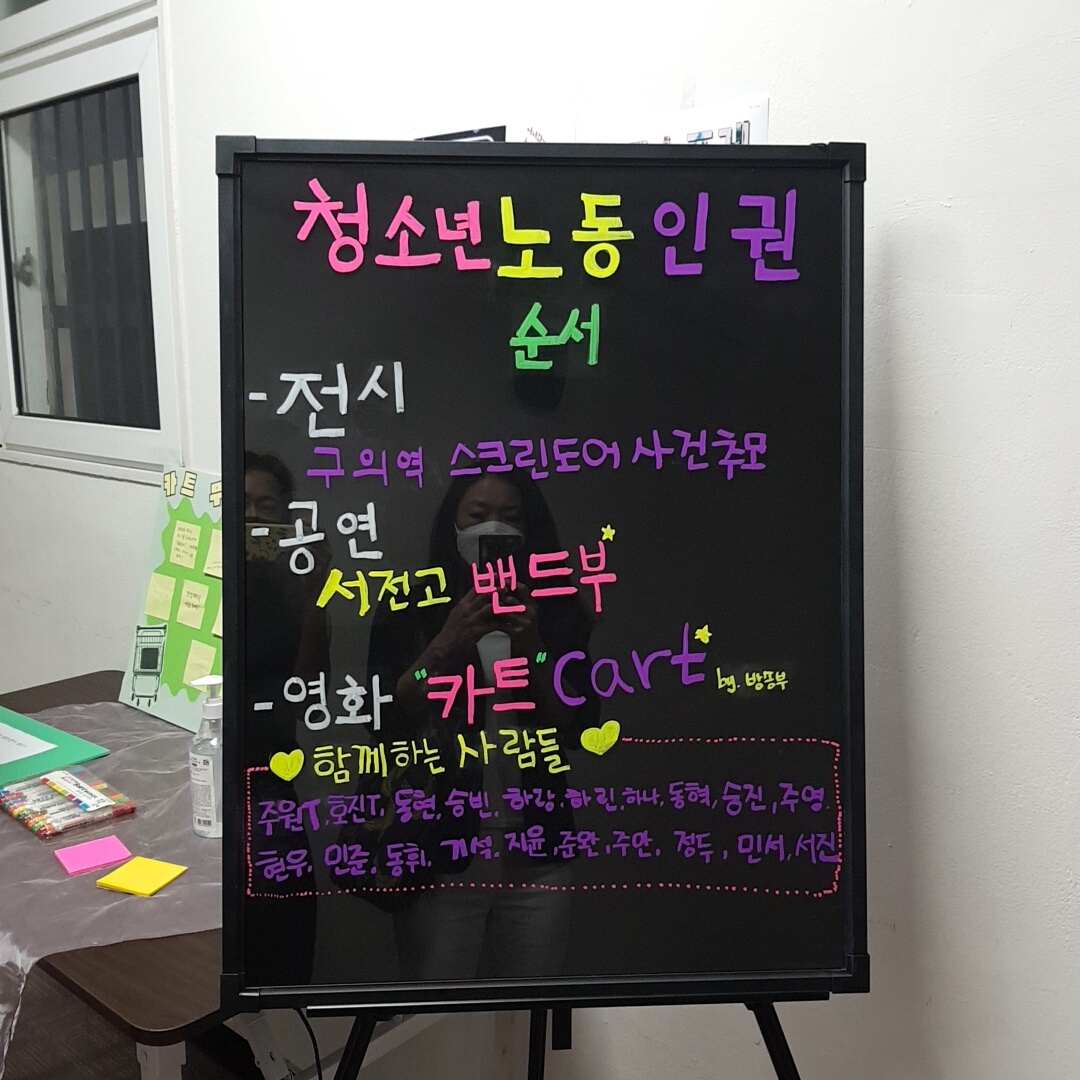 청소년 노동 인권
순서
- 전시
구의역 스크린도어 사건 추모
- 공연
서전고 밴드부
- 영화 "카트" Cart by. 방송부
함께하는 사람들
주원T, 호진T, 동현, 승빈, 하랑, 하린, 하나, 동혁, 승진, 주영.
현우, 민준, 동휘, 기석, 지윤, 준완, 주안, 정두, 민서, 서진
카트